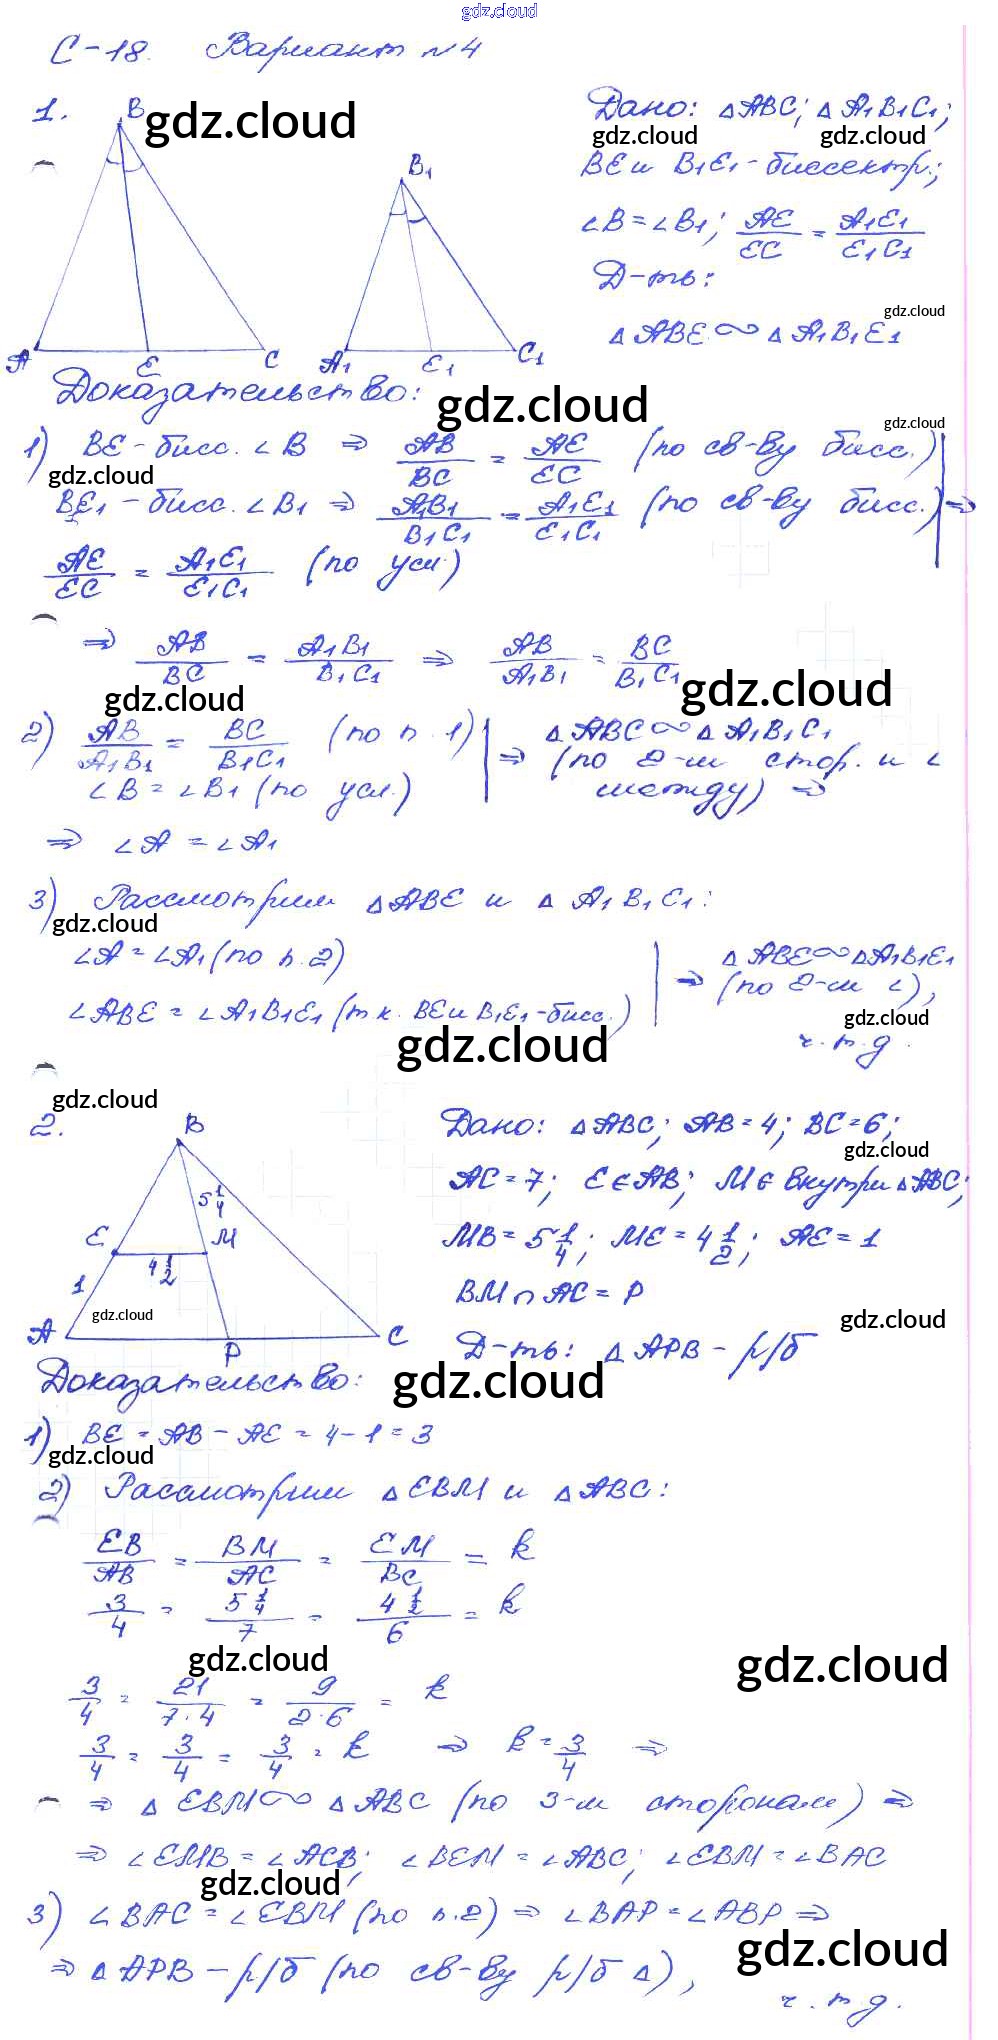 gdz.cloud
С-18. Вариант №4
1.
B
gdz.cloud
A
E
C
B₁
A₁
E₁
C₁
Дано: △ABC; △A₁B₁C₁;
gdz.cloud gdz.cloud
BE и B₁E₁ - биссектр.;
∠B = ∠B₁; AE/EC = A₁E₁/E₁C₁
Д-ть:
gdz.cloud
△ABE ∾ △A₁B₁E₁
Доказательство:
gdz.cloud
gdz.cloud
1) BE - бисс. ∠B ⇒ AB/BC = AE/EC (по св-ву бисс.)
gdz.cloud
BE₁ - бисс. ∠B₁ ⇒ A₁B₁/B₁C₁ = A₁E₁/E₁C₁ (по св-ву бисс.) ⇒
AE/EC = A₁E₁/E₁C₁ (по усл.)
⇒ AB/BC = A₁B₁/B₁C₁ ⇒ AB/A₁B₁ = BC/B₁C₁
gdz.cloud gdz.cloud
2) AB/A₁B₁ = BC/B₁C₁ (по п.1)
∠B = ∠B₁ (по усл.)
⇒ △ABC ∾ △A₁B₁C₁
(по 2-м стор. и ∠
между) ⇒
⇒ ∠A = ∠A₁
3) Рассмотрим △ABE и △A₁B₁E₁:
gdz.cloud
∠A = ∠A₁ (по п.2)
∠ABE = ∠A₁B₁E₁ (т.к. BE и B₁E₁ - бисс.)
⇒ △ABE ∾ △A₁B₁E₁
(по 2-м ∠),
gdz.cloud
ч.т.д.
gdz.cloud
gdz.cloud
2.
B
5 1/4
E
M
4 1/2
1
gdz.cloud
A
P
C
Дано: △ABC; AB = 4; BC = 6;
gdz.cloud
AC = 7; E ∈ AB; M ∈ внутри △ABC;
MB = 5 1/4; ME = 4 1/2; AE = 1
BM ∩ AC = P
gdz.cloud
Д-ть: △APB - р/б
Доказательство:
gdz.cloud
1) BE = AB - AE = 4 - 1 = 3
gdz.cloud
2) Рассмотрим △EBM и △ABC:
EB/AB = BM/AC = EM/BC = k
3/4 = 5 1/4/7 = 4 1/2/6 = k
gdz.cloud gdz.cloud
3/4 = 21/7·4 = 9/2·6 = k
3/4 = 3/4 = 3/4 = k ⇒ k = 3/4 ⇒
⇒ △EBM ∾ △ABC (по 3-м сторонам) ⇒
⇒ ∠EMB = ∠ACB; ∠BEM = ∠ABC; ∠EBM = ∠BAC
gdz.cloud
3) ∠BAC = ∠EBM (по п.2) ⇒ ∠BAP = ∠ABP ⇒
gdz.cloud
⇒ △APB - р/б (по св-ву р/б △),
ч.т.д.